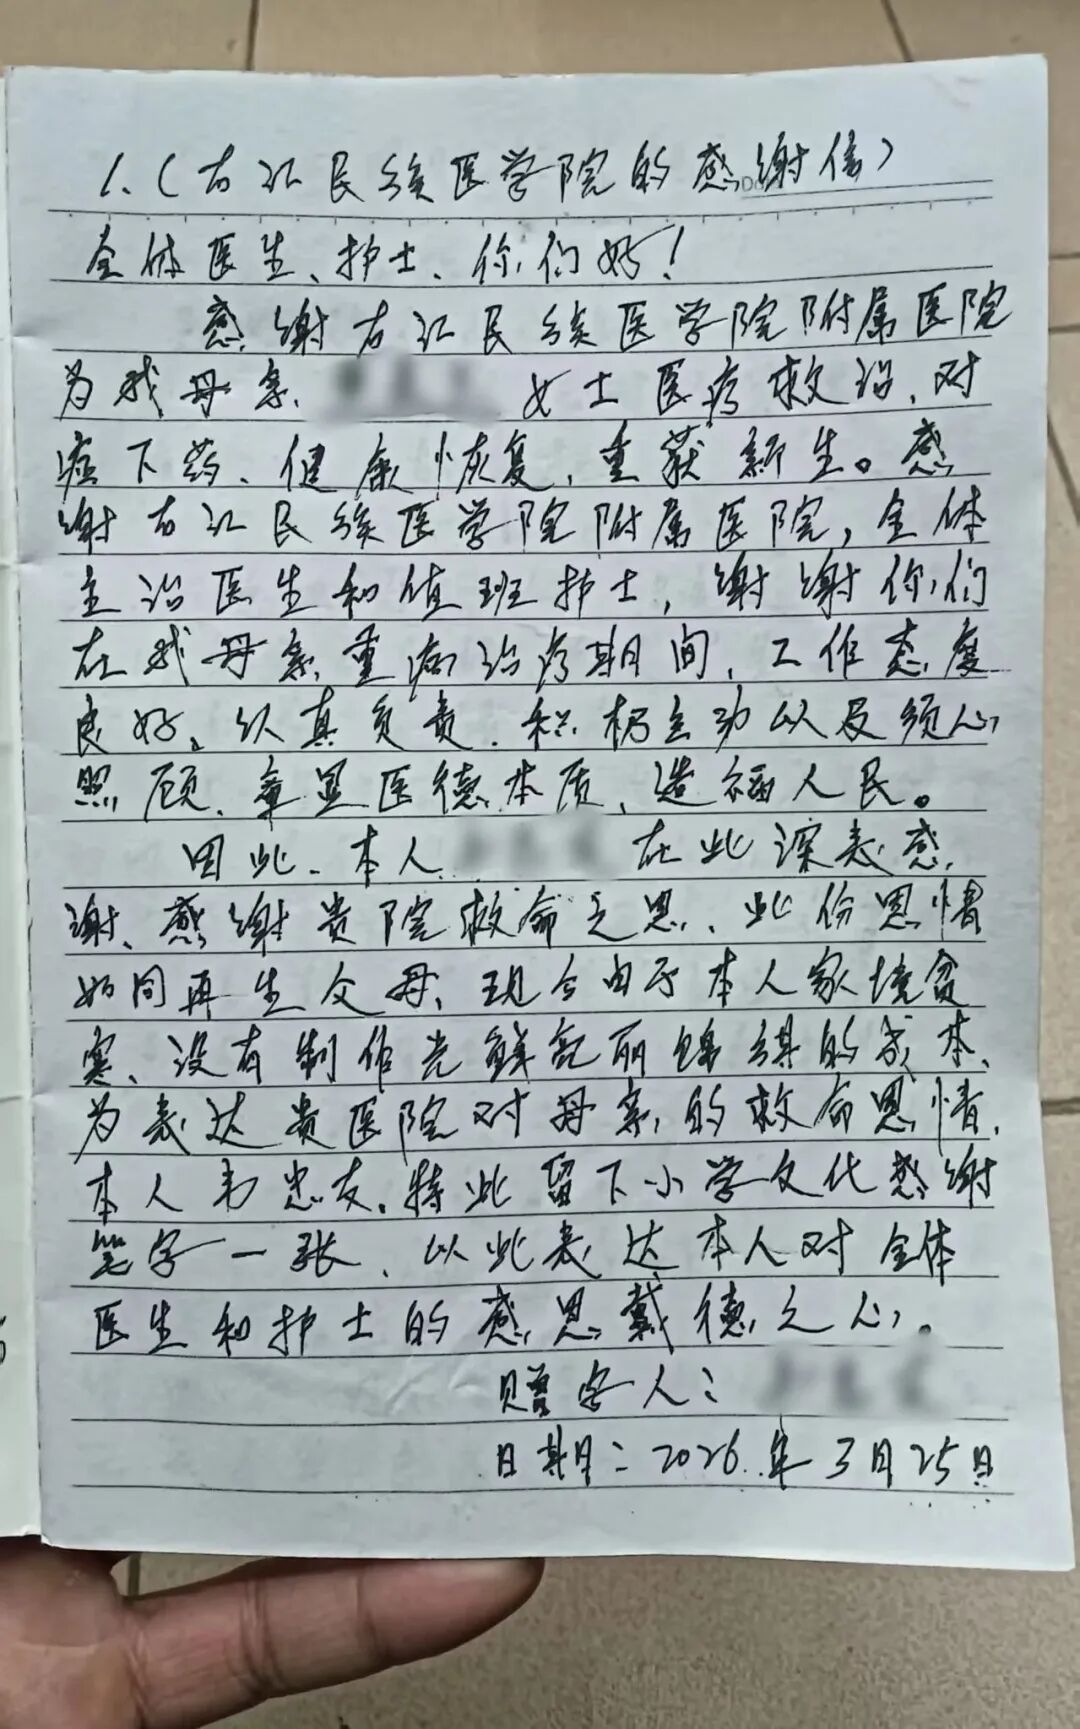 1.（右江民族医学院的感谢信）
全体医生、护士、你们好！
感谢右江民族医学院附属医院
为我母亲 女士医疗救治、对
症下药、健康恢复、重获新生。感
谢右江民族医学院附属医院，全体
主治医生和值班护士，谢谢你们
在我母亲重病治疗期间、工作态度
良好、认真负责、积极主动以及须心
照顾、章显医德本质、造福人民。
因此、本人 在此深表感
谢、感谢贵院救命之恩、此份恩情
如同再生父母、现今由于本人家境贫
寒、没有制作光鲜亮丽锦旗的成本、
为表达贵医院对母亲的救命恩情、
本人韦忠友、特此留下小学文化感谢
笔字一张、以此表达本人对全体
医生和护士的感恩戴德之心。
赠字人：
日期：2026年3月25日